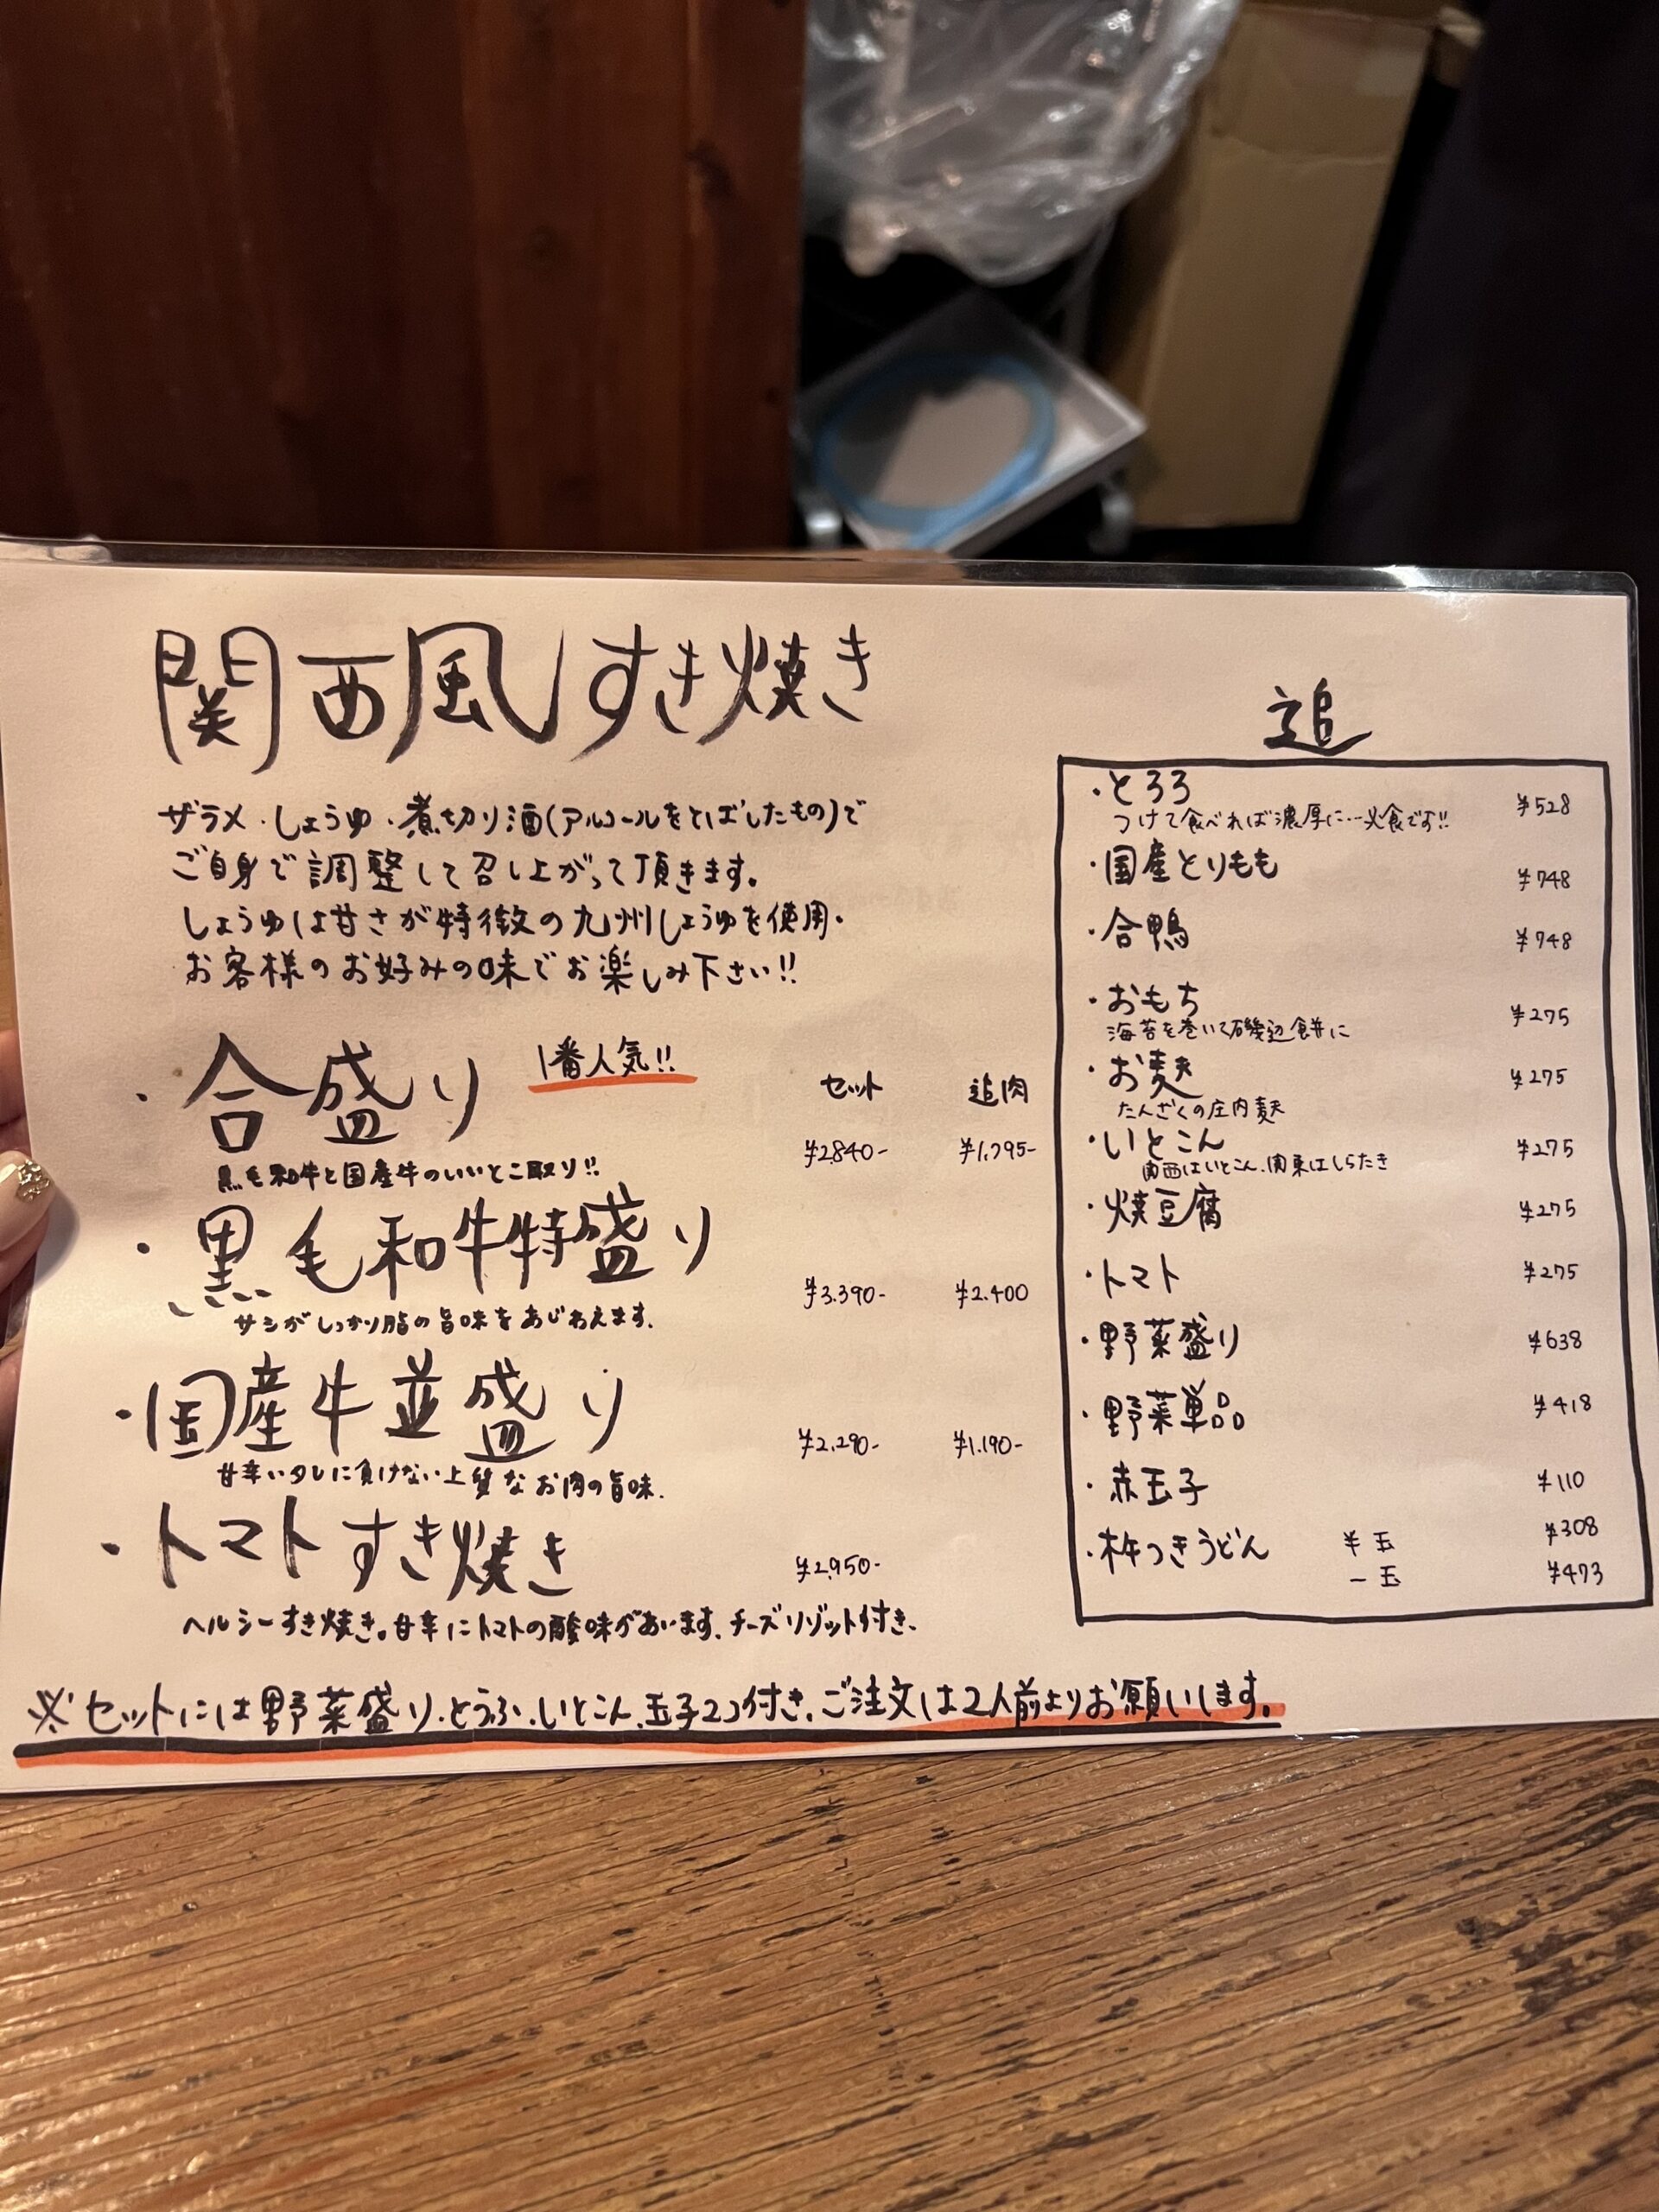 関西風すき焼き
ザラメ・しょうゆ・煮切り酒(アルコールをとばしたもの)で
ご自身で調整して召し上がって頂きます。
しょうゆは甘さが特徴の九州しょうゆを使用。
お客様のお好みの味でお楽しみ下さい!!
セット 追肉
・合盛り 1番人気!! ¥2,840- ¥1,795-
黒毛和牛と国産牛のいいとこ取り!!
・黒毛和牛特盛り ¥3,390- ¥2,400
サシがしっかり脂の旨味をあじわえます.
・国産牛並盛り ¥2,290- ¥1,190-
甘辛いタレに負けない上質なお肉の旨味.
・トマトすき焼き ¥2,950-
ヘルシーすき焼き。甘辛にトマトの酸味があいます.チーズリゾット付き.
追
・とろろ ¥528
つけて食べれば濃厚に…必食です!!
・国産とりもも ¥748
・合鴨 ¥748
・おもち ¥275
海苔を巻いて磯辺餅に
・お麩 ¥275
たんざくの庄内麩
・いとこん ¥275
関西はいとこん.関東はしらたき
・焼豆腐 ¥275
・トマト ¥275
・野菜盛り ¥638
・野菜単品 ¥418
・赤玉子 ¥110
・杵つきうどん 半玉 ¥308
一玉 ¥473
※セットには野菜盛り.とうふ.いとこん.玉子2コ付き.ご注文は2人前よりお願いします。